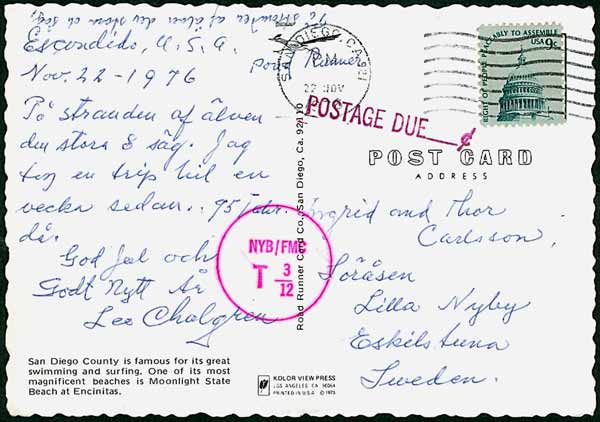 Escondido, U.S.A.
Nov. 22 - 1976
På stranden af älven
den stora & säg. Jag
tog en trip hit en
vecka sedan. 95
då.
God Jul och
Godt Nytt År
Lee Chalgren
San Diego County is famous for its great
swimming and surfing. One of its most
magnificent beaches is Moonlight State
Beach at Encinitas.
Road Runner Card Co., San Diego, Ca. 92110
SAN DIEGO, CA
22 NOV
POSTAGE DUE ¢
RIGHT OF PEOPLE PEACEABLY TO ASSEMBLE
USA 9c
POST CARD
ADDRESS
NYB/FM
T 3/12
Ingrid and Thor
Carlsson,
Söråsen
Lilla Nyby
Eskilstuna
Sweden.
KOLOR VIEW PRESS
LOS ANGELES, CA. 90064
PRINTED IN U.S.A. © 1975